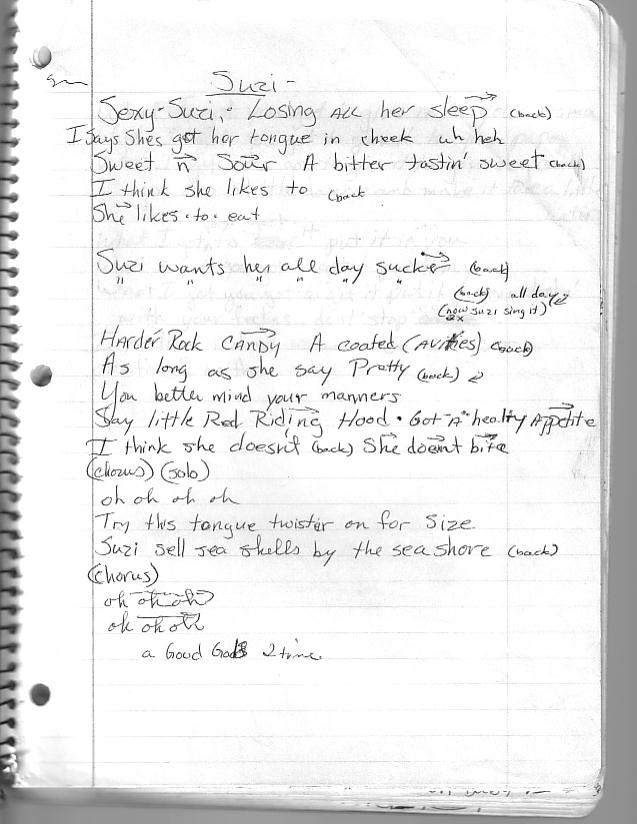 Suzi -
Sexy-Suzi, - Losing ALL her sleep (back)
I Says Shes got her tongue in cheek uh heh
Sweet n Sour A bitter tastin' sweet (back)
I think she likes to (back
She likes · to · eat
Suzi wants her all day sucker (back)
" " " " " "
(back) all day
(now suzi sing it)
2x
Harder Rock Candy A coated (Avities) (back)
As long as she say Pretty (back)
You better mind your manners
Say little Red Riding Hood · Got "A" healty Appetite
I think she doesn't (back) She doesnt bite
(chorus) (solo)
oh oh oh oh
Try this tongue twister on for size
Suzi sell sea shells by the sea shore (back)
(chorus)
oh oh oh
oh oh oh
a Good 2 time